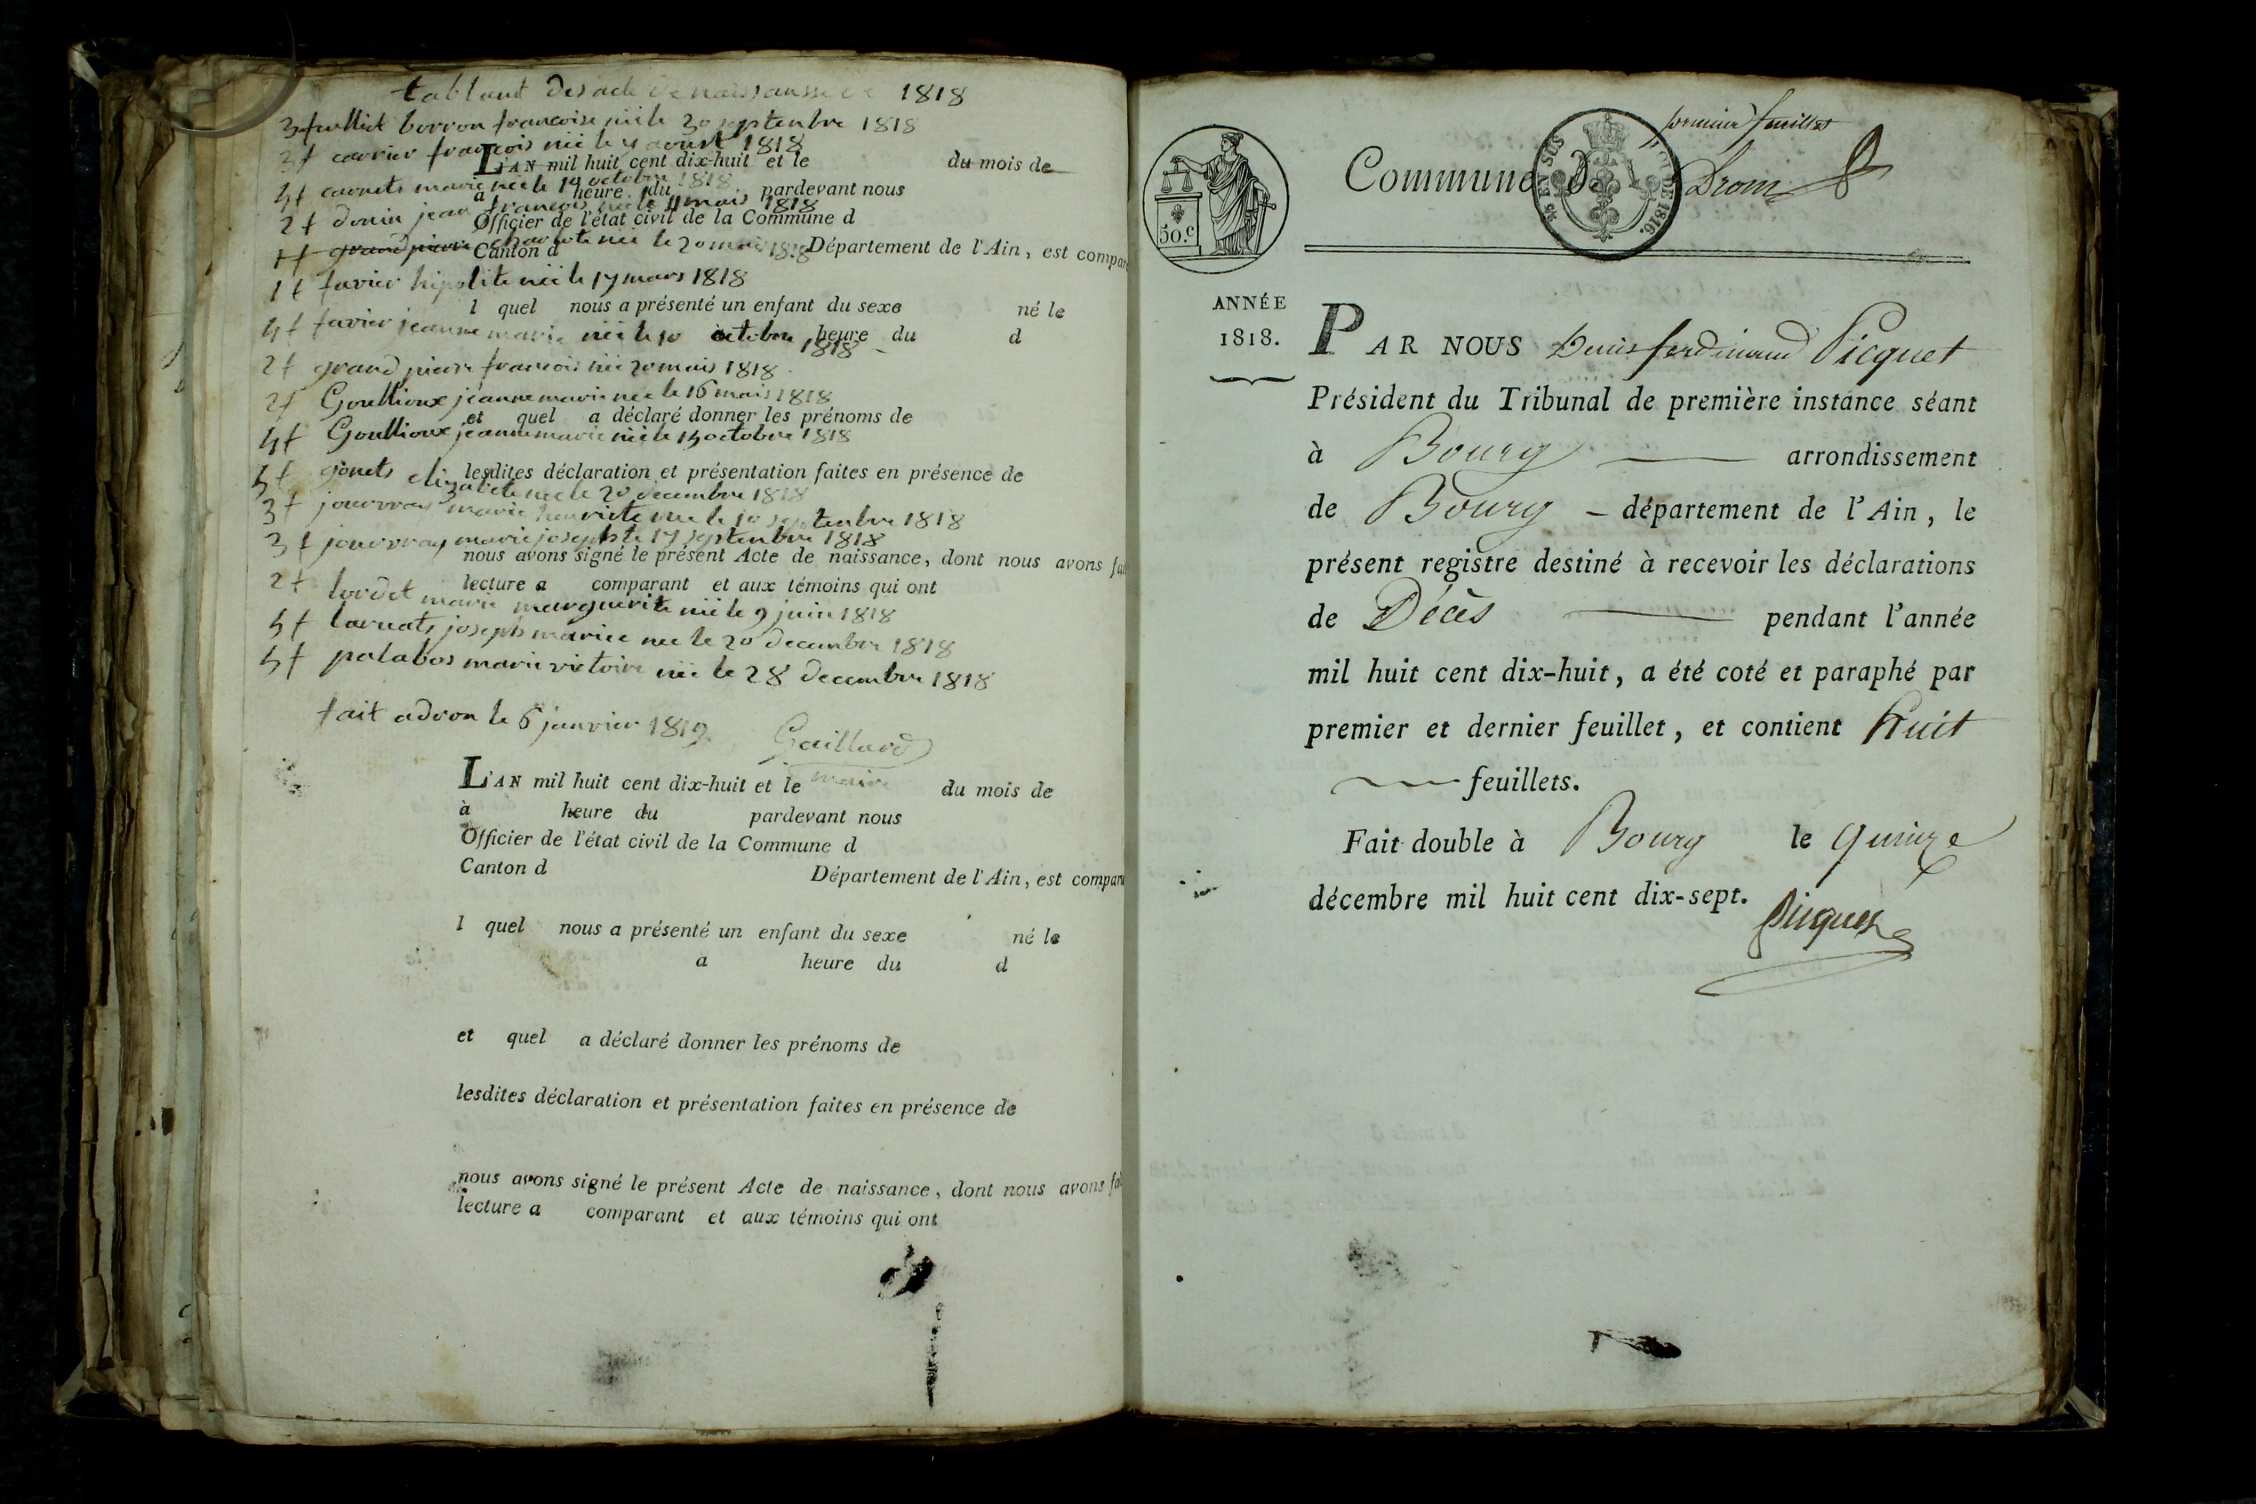 tableaut des acte de naissansse de 1818
3 feulliet borron francoise née le 30 septenbre 1818
3 f carrier francois née le 4 aoust 1818
L'AN mil huit cent dix-huit et le du mois de
4 f carnets marie née le 19 octobre 1818
à heure du pardevant nous
2 f donin jean francois née le 11 mais 1818
Officier de l'état civil de la Commune d
1 f grandpierre née le 20 mais 1818
Canton d Département de l'Ain, est compar
1 f favier hipolite née le 17 mars 1818
l quel nous a présenté un enfant du sexe né le
4 f favier jeanne marie née le 10 octobre 1818
heure du d
2 f grand pierre francois née 20 mais 1818
2 f Goullioux jeanne marie née le 16 mais 1818
et quel a déclaré donner les prénoms de
4 f Goullioux jeanne marie née le 13 octobre 1818
lesdites déclaration et présentation faites en présence de
4 f gonets elizabete née le 20 decembre 1818
3 f jouvray marie henriete née le 10 septenbre 1818
3 f jouvray marie josephte 17 septenbre 1818
nous avons signé le présent Acte de naissance, dont nous avons fai
lecture a comparant et aux témoins qui ont
2 f lordet marie marguerite née le 9 juin 1818
4 f joseph marice nee le 20 decembre 1818
4 f palabos marie victoire née le 28 decembre 1818
fait a dron le 6 janvier 1819
Gaillard
maire
L'AN mil huit cent dix-huit et le du mois de
à heure du pardevant nous
Officier de l'état civil de la Commune d
Canton d Département de l'Ain, est compar
l quel nous a présenté un enfant du sexe né le
a heure du d
et quel a déclaré donner les prénoms de
lesdites déclaration et présentation faites en présence de
nous avons signé le présent Acte de naissance, dont nous avons fai
lecture a comparant et aux témoins qui ont
premier feuillet
50.c
EN SUS
DE 1816.
Commune de Drom
ANNÉE
1818.
PAR NOUS Denis ferdinand Picquet
Président du Tribunal de première instance séant
à Bourg arrondissement
de Bourg – département de l'Ain, le
présent registre destiné à recevoir les déclarations
de Décès pendant l'année
mil huit cent dix-huit, a été coté et paraphé par
premier et dernier feuillet, et contient huit
feuillets.
Fait double à Bourg le quinze
décembre mil huit cent dix-sept.
Picquet